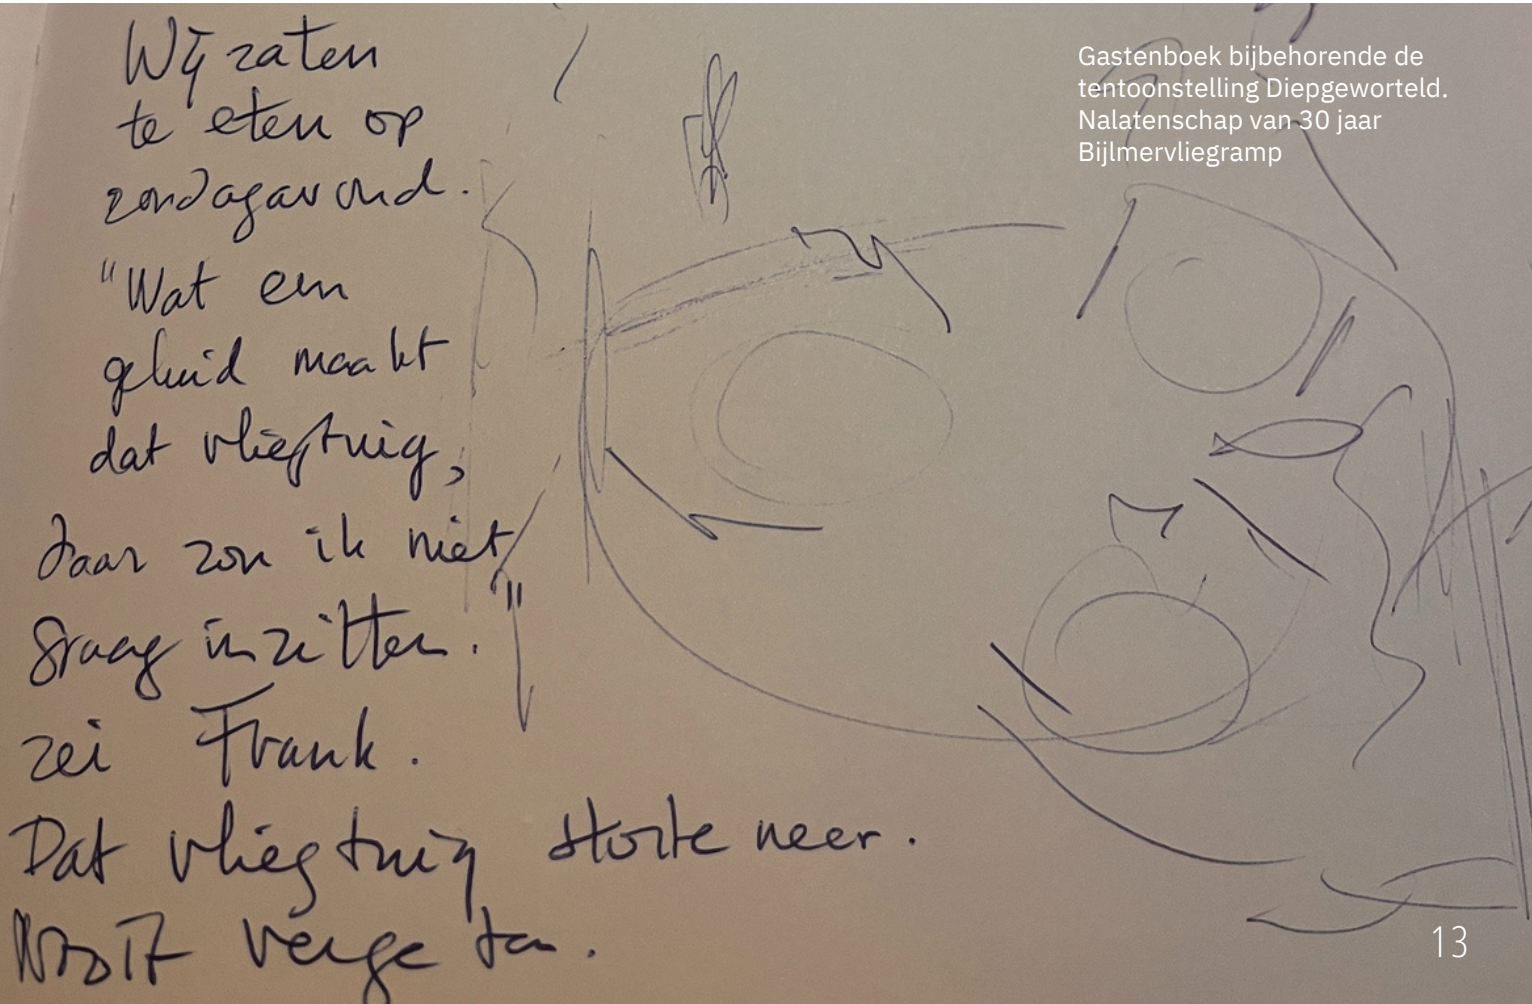 Wij zaten
te eten op
zondagavond.
"Wat een
geluid maakt
dat vliegtuig,
daar zou ik niet
graag in zitten."
zei Frank.
Dat vliegtuig stortte neer.
Nooit vergeten.
Gastenboek bijbehorende de
tentoonstelling Diepgeworteld.
Nalatenschap van 30 jaar
Bijlmervliegramp
13